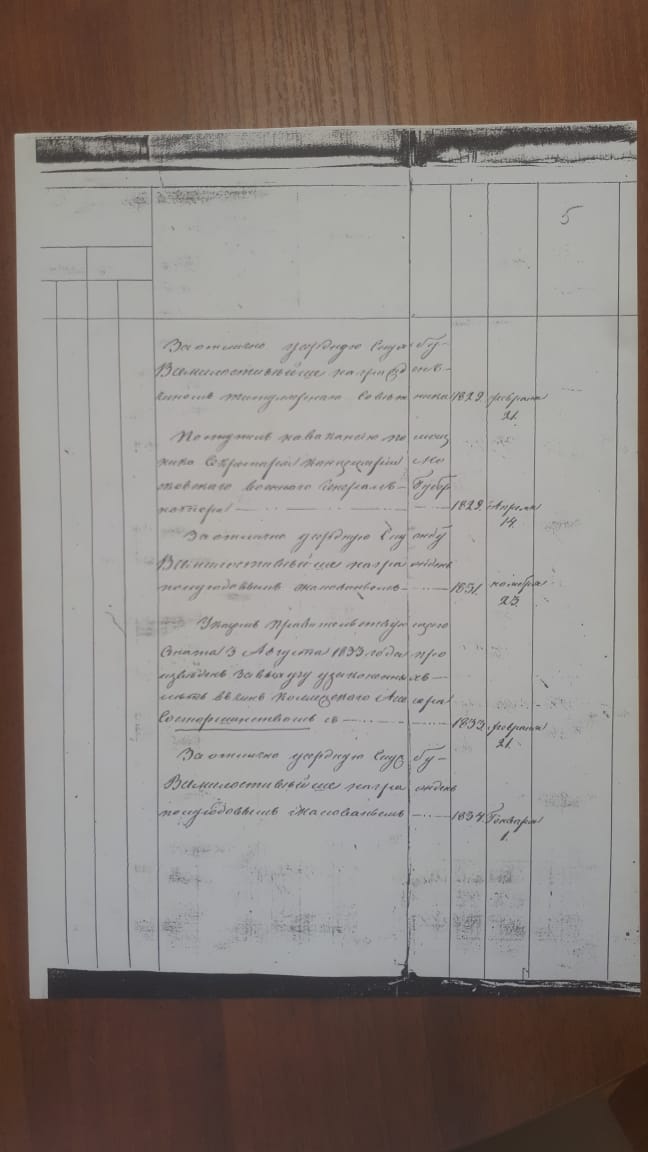 5
За отлично усердную Службу
Всемилостивейше награжден
чином титулярного Советника 1829. февраля 21.
Поступил на ваканцию помощ
ника Секретаря Канцелярии Мо
сковского Военного Генерал-Губер
натора 1829. Апреля 14.
За отлично усердную Службу
Всемилостивейше награжден
полугодовым жалованьем 1831. ноября 23.
Указом Правительствующего
Сената 3 Августа 1833 года про
изведен за выслугу узаконенных
лет в чин Коллежского Асессора
Со старшинством с 1833. февраля 21.
За отлично усердную Службу
Всемилостивейше награжден
полугодовым жалованьем 1834. Генваря 1.